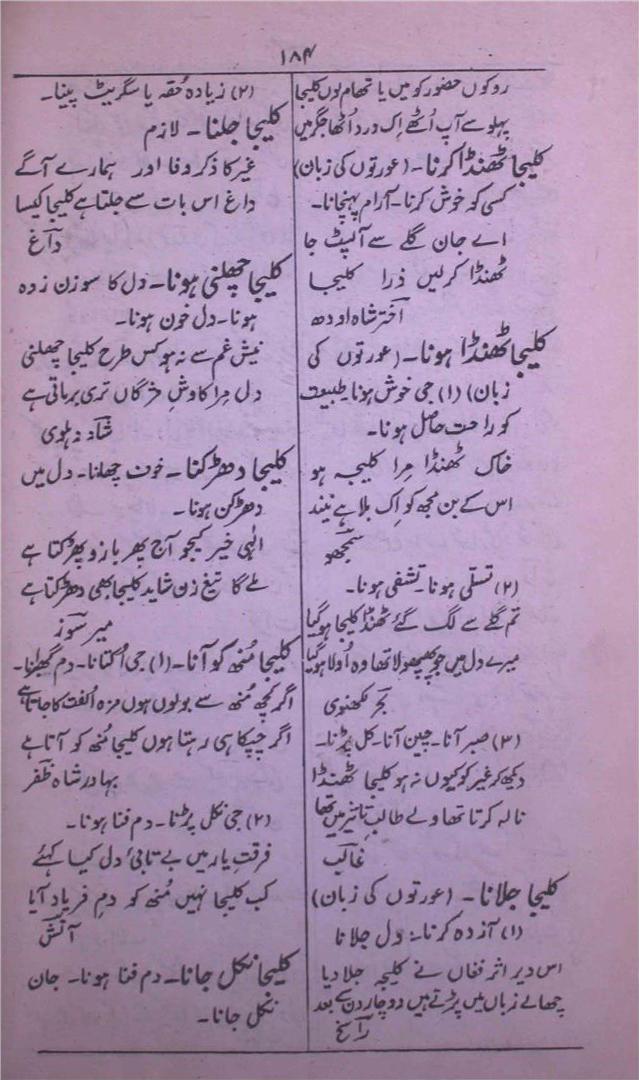 ۱۸۴
روکوں حضور کو میں یا تھام لوں کلیجا
پہلو سے آپ اُٹھے اِک درد اُٹھا جگر میں
کلیجا ٹھنڈا کرنا۔ (عورتوں کی زبان)
کسی کہ خوش کرنا۔ آرام پہنچانا۔
اے جان گلے سے آلپٹ جا
ٹھنڈا کرلیں ذرا کلیجا
اختر شاہ اودھ
کلیجا ٹھنڈا ہونا۔ (عورتوں کی
زبان) (۱) جی خوش ہونا طبیعت
کو راحت حاصل ہونا۔
خاک ٹھنڈا مِرا کلیجہ ہو
اس کے بن مجھ کو اِک بلا ہے نیند
سمجھو
(۲) تسلی ہونا۔ تشفی ہونا۔
تم گلے سے لگ گئے ٹھنڈا کلیجا ہوگیا
میرے دل میں جو پھپھولا تھا وہ اُولا ہوگیا
بحر لکھنوی
(۳) صبر آنا۔ چین آنا۔ کل پڑنا۔
دیکھ کر غیر کو کیوں نہ ہو کلیجا ٹھنڈا
نالہ کرتا تھا ولے طالبِ تاثیر میں تھا
غالب
کلیجا جلانا۔ (عورتوں کی زبان)
(۱) آزدہ کرنا۔ دل جلانا
اس دیر اثر فغاں نے کلیجہ جلا دیا
چھالے زباں میں پڑتے ہیں دوچار دن کے بعد
راسخ
(۲) زیادہ حُقہ یا سگریٹ پینا۔
کلیجا جلنا۔ لازم
غیر کا ذکر وفا اور ہمارے آگے
داغ اس بات سے جلتا ہے کلیجا کیسا
داغ
کلیجا چھلنی ہونا۔ دل کا سوزن زدہ
ہونا۔ دل خون ہونا۔
نیش غم سے نہ ہو کس طرح کلیجا چھلنی
دل مِرا کاوشِ مژگاں تری برماتی ہے
شاد دہلوی
کلیجا دھڑکنا۔ خوف چھلنا۔ دل میں
دھڑکن ہونا۔
الٰہی خیر کیجو آج پھر بازو پھڑکتا ہے
ملے گا تیغ زن شاید کلیجا بھی دھڑکتا ہے
میر سوز
کلیجا مُنھ کو آنا۔ (۱) جی اُکتانا۔ دم گھبرانا۔
اگر کچھ مُنھ سے بولوں ہوں مزہ الفت کا جاتا ہے
اگر چپکا ہی رہتا ہوں کلیجا مُنھ کو آتا ہے
بہادر شاہ ظفر
(۲) جی نکل پڑنا۔ دم فنا ہونا۔
فرقتِ یار میں بے تابیٔ دل کیا کہئے
کب کلیجا نہیں مُنھ کو دمِ فریاد آیا
آتش
کلیجا نکل جانا۔ دم فنا ہونا۔ جان
نکل جانا۔